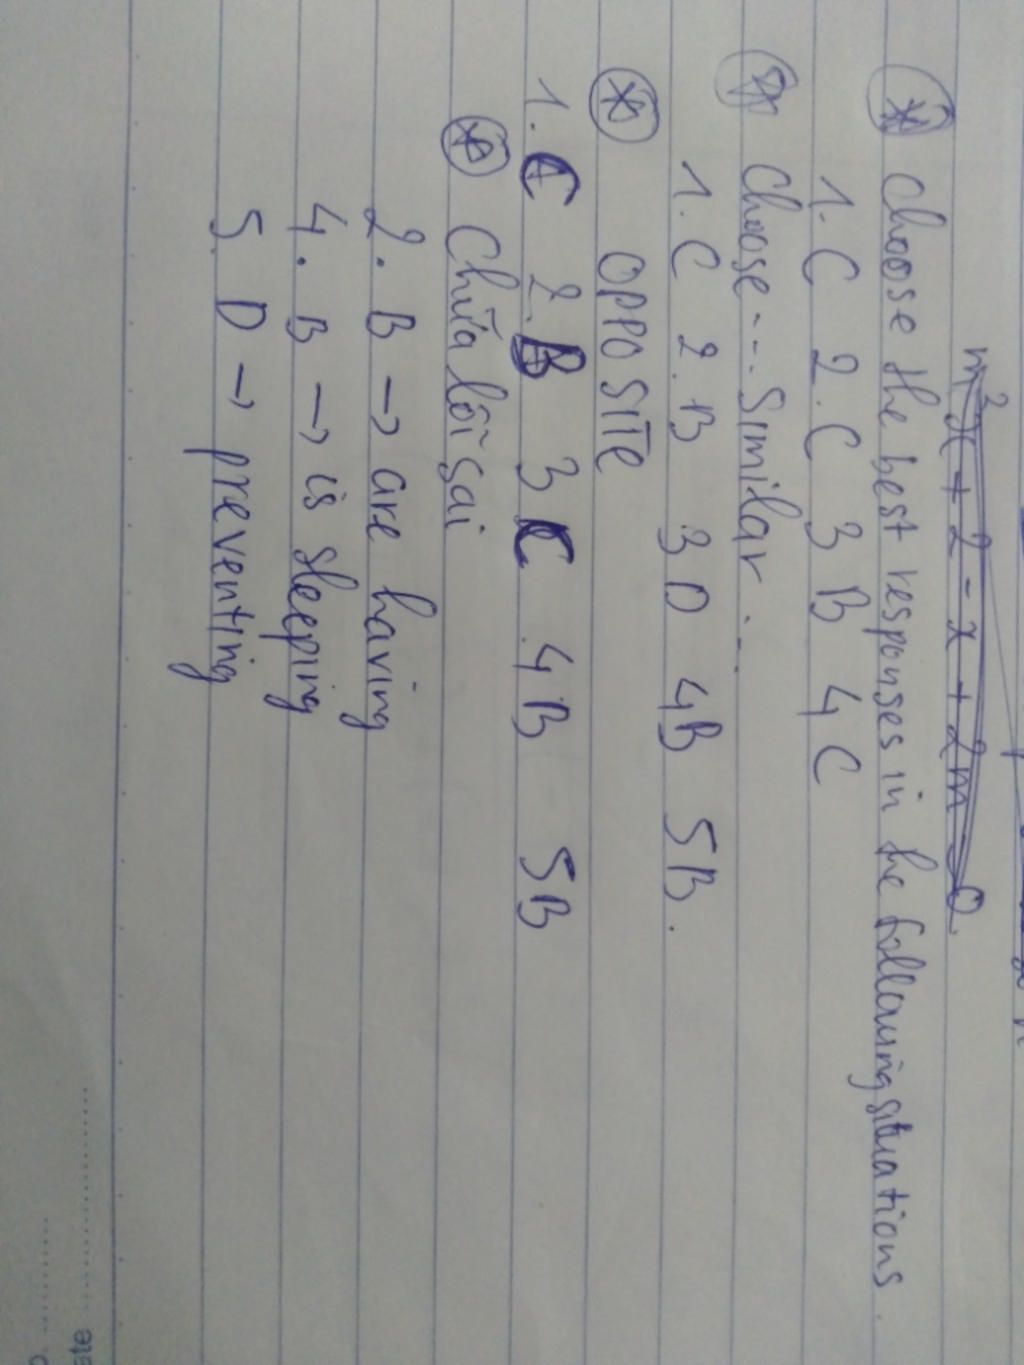 m²x + 2 - x + 2m = 0.
Choose the best responses in he following situations.
1. C 2. C 3 B 4 C
Choose... Similar...
1. C 2. B 3 D 4B 5B.
OPPOSITE
1. C 2. B 3 C 4B 5B
Chữa lỗi sai
2. B → are having
4. B → is sleeping
5. D → preventing